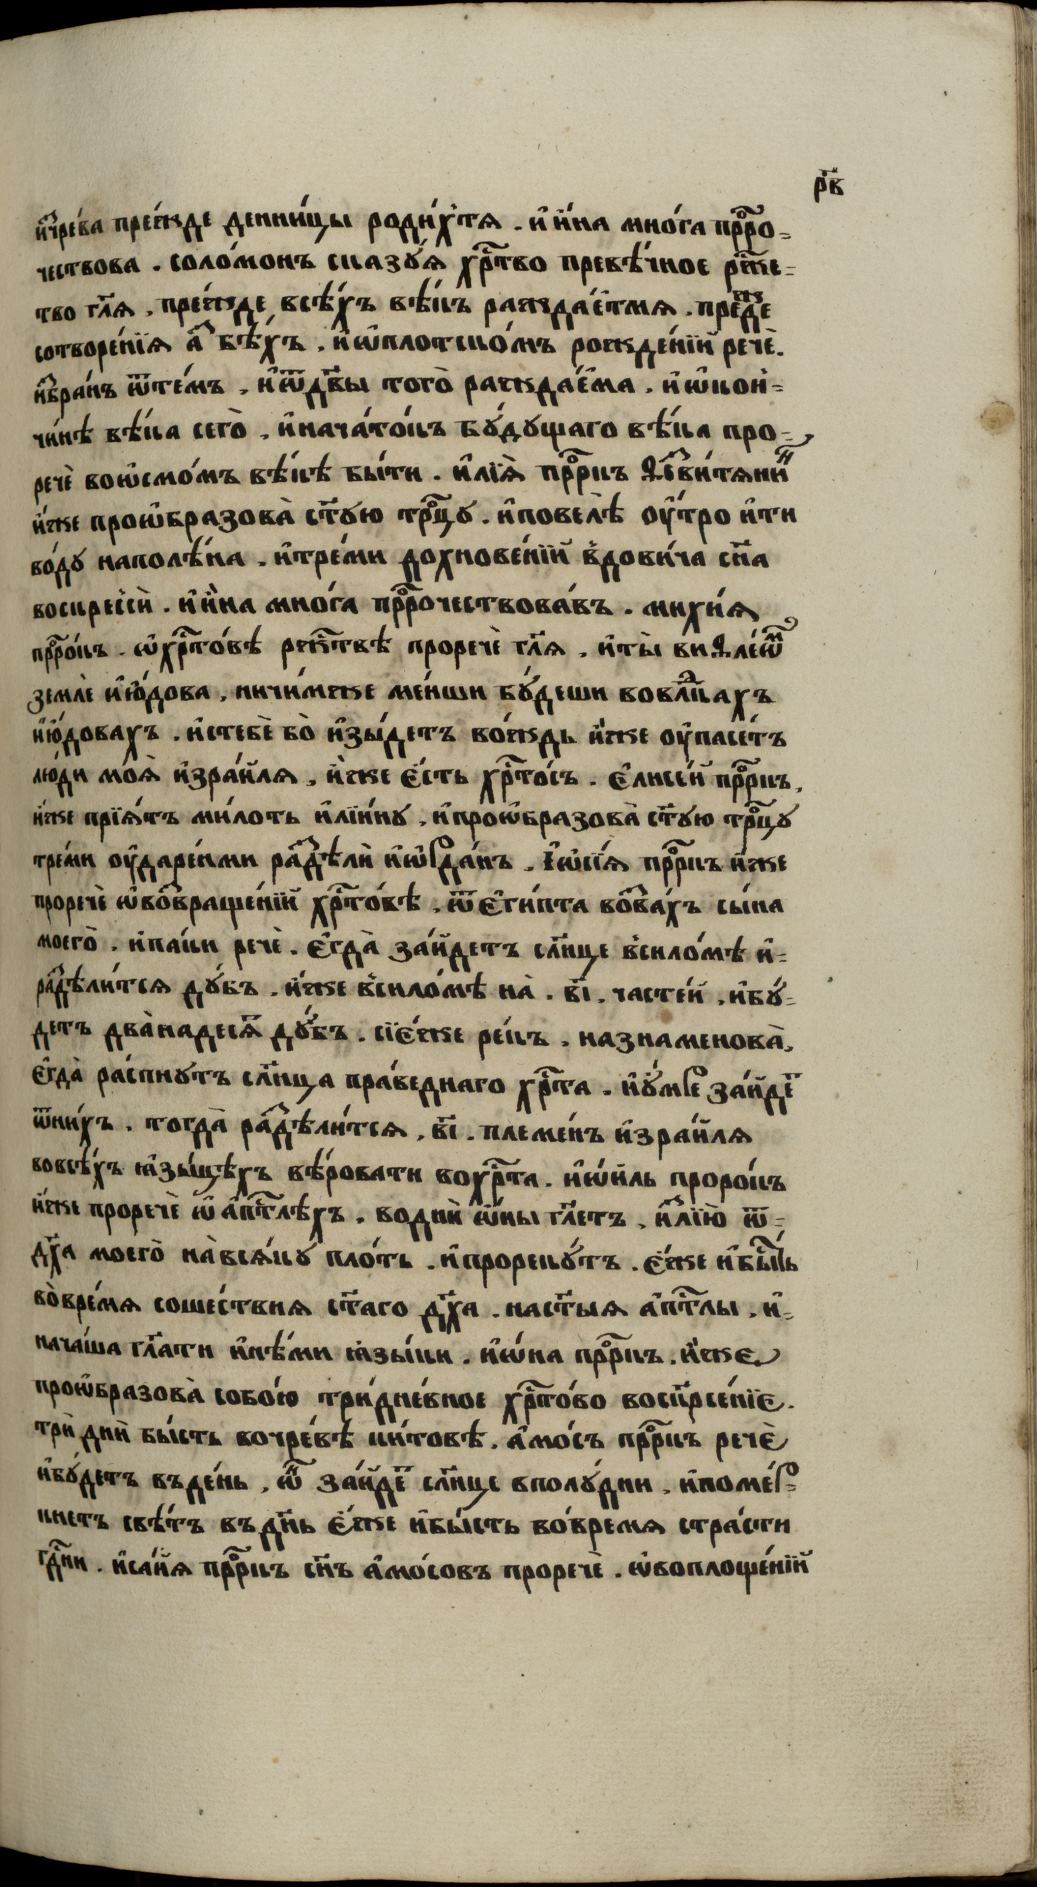 р҃в
и҆з̾чре́ва пре́жде денни́цы роди́хтѧ . и҆ и҆́на мно́га прⷪ҇ро-
чествова . соло́монъ сказꙋ́ѧ хрⷭ҇тво преве́чное ржⷭ҇е-
тво гл҃ѧ . пре́жде всѣ́хъ вѣ́къ ражда́етмѧ . пре́жде
сотворе́нїѧ а҆́з̾ бѣ́хъ . и҆ ѡ҆плотско́мъ рожде́нїй речѐ .
и҆з̾бра́нъ ѿтѣ́мъ . и҆ ѿдв҃ы того̀ ражда́ема . и҆ ѡ҆кон-
чи́нѣ вѣ́ка сего̀ . и҆нача́токъ бꙋ́дꙋщаго вѣ́ка про-
речѐ воѡ҆смо́мъ вѣ́кѣ бы́ти . и҆лїѧ̀ прⷪ҇ркъ ѳезви́тѧнинъ
и҆́же проѡ҆бразова̀ ст҃ꙋю трⷪ҇цꙋ . и҆повелѣ̀ ѹ҆́тро и҆ти
во́дꙋ наполѣ́на . и҆тре́ми дохнове́нїй в̾дови́ча сн҃а
воскресѝ . и҆ и҆́на мно́га прⷪ҇рочествова́въ . михи́ѧ
прⷪ҇ро́къ . ѡ҆хрⷭ҇то́вѣ ржⷭ҇твѣ̀ проречѐ гл҃ѧ . и҆ты̀ виѳлео́мъ
землѐ и҆ю҆́дова . ничи́мже ме́нши бꙋ́деши вовлⷣкахъ
и҆ю҆́довахъ . и҆стебѐ бо̀ и҆зы́детъ во́ждь и҆́же ѹ҆пасе́тъ
лю́ди моѧ̀ и҆зра́йлѧ . и҆́же є҆́сть хрⷭ҇то́съ . є҆лисе́й прⷪ҇ркъ .
и҆́же прїѧ́тъ ми́лоть и҆лїи́нꙋ . и҆проѡ҆бразова̀ ст҃ꙋю трⷪ҇цꙋ
треми ѹ҆даре́нми раздѣлѝ и҆ѡ҆рда́нъ . і҆ѡ҆сі́ѧ прⷪ҇ркъ и҆́же
проречѐ ѡ҆воз̾враще́нїй хрⷭ҇то́вѣ . ѿє҆ги́пта воз̾ва́хъ сы́на
моего̀ . и҆па́ки речѐ . є҆гда̀ за́йдетъ сл҃нце в̾сило́мѣ и҆-
раз̾дѣли́тсѧ дꙋ́бъ . и҆́же в̾сило́мѣ на̀ . в҃і . часте́й . и҆бꙋ́-
детъ два̀надесѧⷮ дꙋ́бъ . сїе́же ре́къ . назнаменова̀ .
є҆гда̀ ра́спнꙋтъ сл҃нца пра́веднаго хрⷭ҇та . и҆ѹ҆́мре за́йдеⷮ
ѿни́хъ . тогда̀ раз̾дѣли́тсѧ . в҃і . племе́нъ и҆зра́йлѧ
вовсѣ́хъ ꙗ҆зы́цѣхъ вѣ́ровати вохрⷭ҇та . и҆ѡ҆́иль проро́къ
и҆́же проречѐ ѡ҆ а҆пⷭ҇тлѣхъ . воднѝ ѡ҆́ны гл҃етъ . и҆з̾лїю̀ ѿ-
дх҃а моего̀ на̀всѧ́кꙋ пло́ть . и҆прорекꙋ́тъ . є҆́же и҆бы́сть
во̀вре́мѧ соше́ствиѧ ст҃аго дх҃а . наст҃ы́ѧ а҆пⷭ҇тлы . и҆-
нача́ша гл҃ати и҆нѣ́ми ꙗ҆зы́ки . и҆ѡ҆́на прⷪ҇ркъ . и҆́же
проѡ҆бразова̀ собо́ю три́дне́вное хрⷭ҇то́во воскр҃се́нїе .
трѝ днѝ бы́сть вочре́вѣ ки́товѣ . а҆мо́съ прⷪ҇ркъ речѐ
и҆бꙋ́детъ въде́нь , ѡ҆́нъ за́йдеⷮ сл҃нце вполꙋ́дни . и҆поме́р-
кнетъ свѣ́тъ въ дн҃ь є҆́же и҆бы́сть во́вре́мѧ стра́сти
гдⷭ҇ни . и҆са́їѧ прⷪ҇ркъ сн҃ъ а҆мо́совъ проречѐ . ѡ҆воплоще́нїй